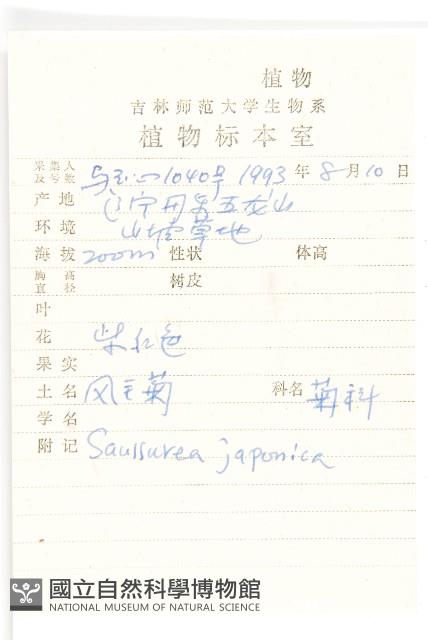 植物
吉林师范大学生物系
植物标本室
采集人及号数 1040号 1993 年 8 月 10 日
产地 辽宁丹东五龙山
环境 山坡草地
海拔 200m 性状 体高
胸高直径 树皮
叶
花 紫红色
果实
土名 风毛菊 科名 菊科
学名
附记 Saussurea japonica
國立自然科學博物館
NATIONAL MUSEUM OF NATURAL SCIENCE